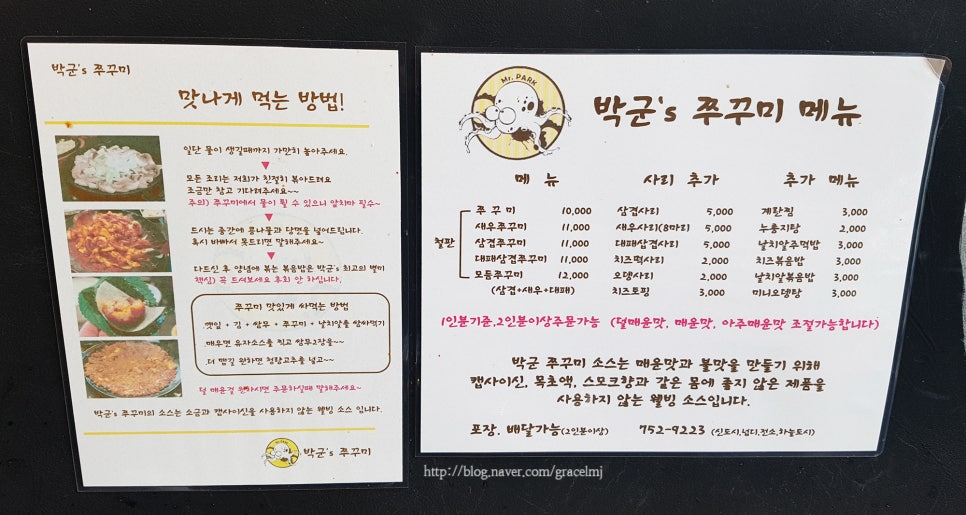 박군's 쭈꾸미
맛나게 먹는 방법!
일단 물이 생길때까지 가만히 놓아주세요.
모든 조리는 저희가 친절히 볶아드려요
조금만 참고 기다려주세요~~
주의) 쭈꾸미에서 물이 튈 수 있으니 앞치마 필수~
드시는 중간에 콩나물과 당면을 넣어드립니다.
혹시 바빠서 못드리면 말해주세요~
다드신 후 양념에 볶는 볶음밥은 박군's 최고의 별미
핵심) 꼭 드셔보세요 후회 안 하십니다.
쭈꾸미 맛있게 싸먹는 방법
깻잎 + 김 + 쌈무 + 쭈꾸미 + 날치알을 쌈싸먹기
.매우면 유자소스를 찍고 쌈무2장을~~
.더 맵길 원하면 청량고추를 넣고~~
덜 매운걸 원하시면 주문하실때 말해주세요~
박군's 쭈꾸미의 소스는 소금과 캡사이신을 사용하지 않는 웰빙 소스 입니다.
박군's 쭈꾸미
Mr. PARK
박군's 쭈꾸미 메뉴
메 뉴 사리 추가 추가 메뉴
쭈 꾸 미 10,000 삼겹사리 5,000 계란찜 3,000
새우쭈꾸미 11,000 새우사리(8마리) 5,000 누룽지탕 2,000
철판 삼겹쭈꾸미 11,000 대패삼겹사리 5,000 날치알주먹밥 3,000
대패삼겹쭈꾸미 11,000 치즈떡사리 2,000 치즈볶음밥 3,000
모듬쭈꾸미 12,000 오뎅사리 2,000 날치알볶음밥 3,000
(삼겹+새우+대패) 치즈토핑 3,000 미니오뎅탕 3,000
1인분기준,2인분이상주문가능 (덜매운맛, 매운맛, 아주매운맛 조절가능합니다)
박군 쭈꾸미 소스는 매운맛과 불맛을 만들기 위해
캡사이신, 목초액, 스모크향과 같은 몸에 좋지 않은 제품을
사용하지 않는 웰빙 소스입니다.
포장. 배달가능(2인분이상) 752-9223 (신도시,넙디,전소,하늘도시)
http://blog.naver.com/gracelmj